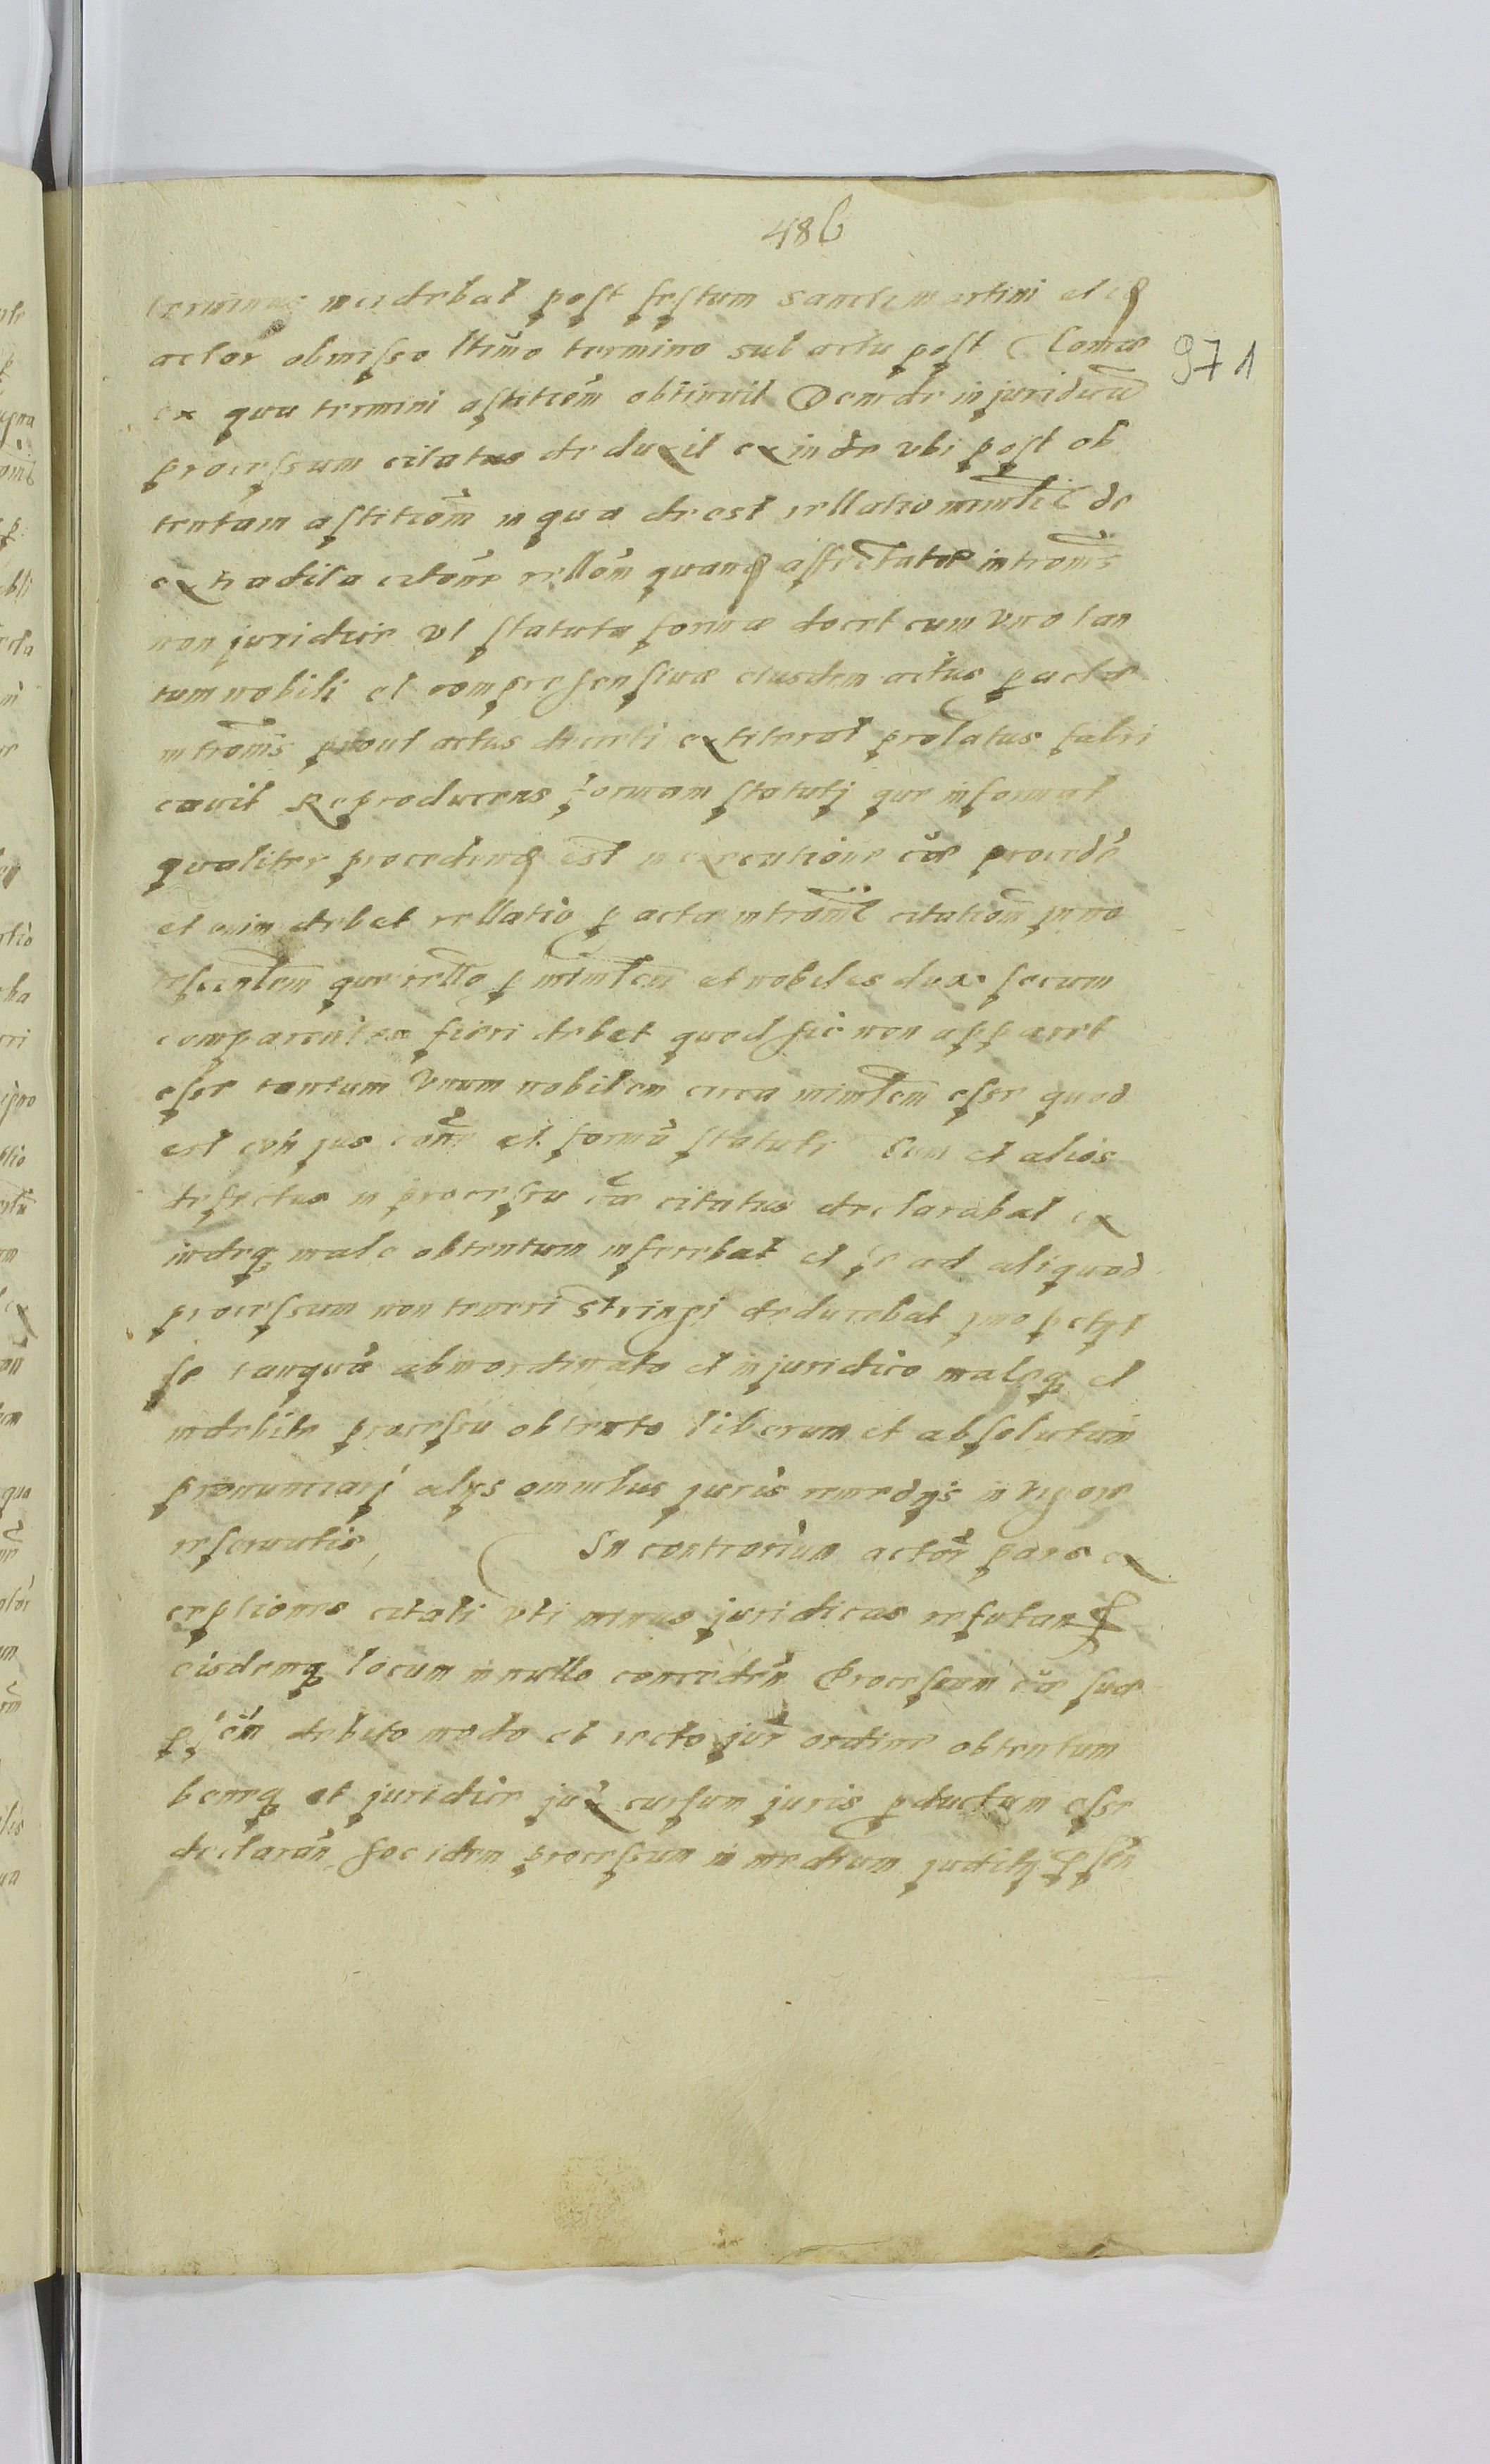 486
971
terminus incidebat post festum Sancti martini et
actor obmisso ltimo termino sub actu post
ex quu termini astitiom obtinuit Demde injuridicu
processum citatus deduxit exinde vbi post ob
tentam astitiom in qua deest rellatio mimlē de
extradita citōne rellom quanq intromis
non juridice vt statuta formæ docet cum vno tan
tum nobili et comprehensiuæ eiusdem actus p actæ
intromis prout actus decreti extiterat prolatus fabri
cauit Reproducens formam statutj que informat
qualiter procedend est in executione cæ procede
et enim debet rellatio p actæ intromē citatiom inno
tescentem que rello p mimlem et nobiles duos secum
comparentes fieri debet quod sic non apparet
esse tantum vnum nobilem circa mimlem esse quod
est con jus cone et formā statuti Sua et alios
defectus in processu cæ citatus declarabat ex
indeq male obtentum inferebat et se ad aliquod
processum non teneri stringi deducebat imo petijt
se tanquā ab inordinato et injuridico maleq et
indebite processu obtento liberum et absolutum
pronunciarj alijs omnibus juris remedijs in vigore
reseruatis, In contrarium actor pars ex
ceptiones citati vti minus juridicas refutand
eisdemq locum in nullo conceden Processum cæ suæ
psen debito modo et recto jur ordine obtentum
beneq et juridice jux cursum juris pductum esse
declaran hoc idem processum in medium juditij psen